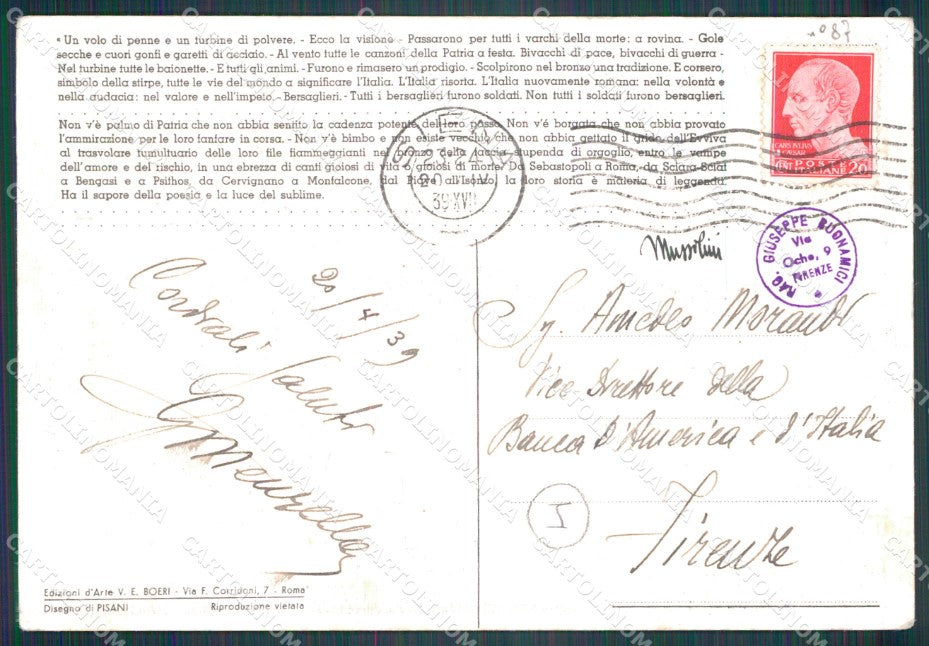 n° 87
« Un volo di penne e un turbine di polvere. - Ecco la visione - Passarono per tutti i varchi della morte: a rovina. - Gole
secche e cuori gonfi e garetti di acciaio. - Al vento tutte le canzoni della Patria a festa. Bivacchi di pace, bivacchi di guerra -
Nel turbine tutte le baionette. - E tutti gli animi. - Furono e rimasero un prodigio. - Scolpirono nel bronzo una tradizione. E corsero,
simbolo della stirpe, tutte le vie del mondo a significare l'Italia. L'Italia risorta. L'Italia nuovamente romana: nella volontà e
nella audacia: nel valore e nell'impeto - Bersaglieri. - Tutti i bersaglieri furono soldati. Non tutti i soldati furono bersaglieri.
Non v'è palmo di Patria che non abbia sentito la cadenza potente del loro passo. Non v'è borgata che non abbia provato
l'ammirazione per le loro fanfare in corsa. - Non v'è bimbo e non esiste vecchio che non abbia gettato il grido dell'Evviva
al trasvolare tumultuario delle loro file fiammeggianti nel bronzo della faccia stupenda di orgoglio, entro le vampe
dell'amore e del rischio, in una ebrezza di canti gioiosi di vita o gioiosi di morte. Da Sebastopoli a Roma, da Sciara-Sciat
a Bengasi e a Psithos, da Cervignano a Montfalcone, dal Piave all'Isonzo, la loro storia è materia di leggenda.
Ha il sapore della poesia e la luce del sublime.
CAIVS IVLIVS
CAESAR
CENT. POSTE 20
ITALIANE
39 XVII
Mussolini
RAG. GIUSEPPE BUONAMICI
Via
Oche, 9
FIRENZE
20/4/39
Cordiali Saluti
Sig. Amedeo Morandi
Vice Direttore della
Banca d'America e d'Italia
Firenze
5
Edizioni d'Arte V. E. BOERI - Via F. Corridoni, 7 - Roma
Disegno di PISANI Riproduzione vietata
CARTOLINOMANIA